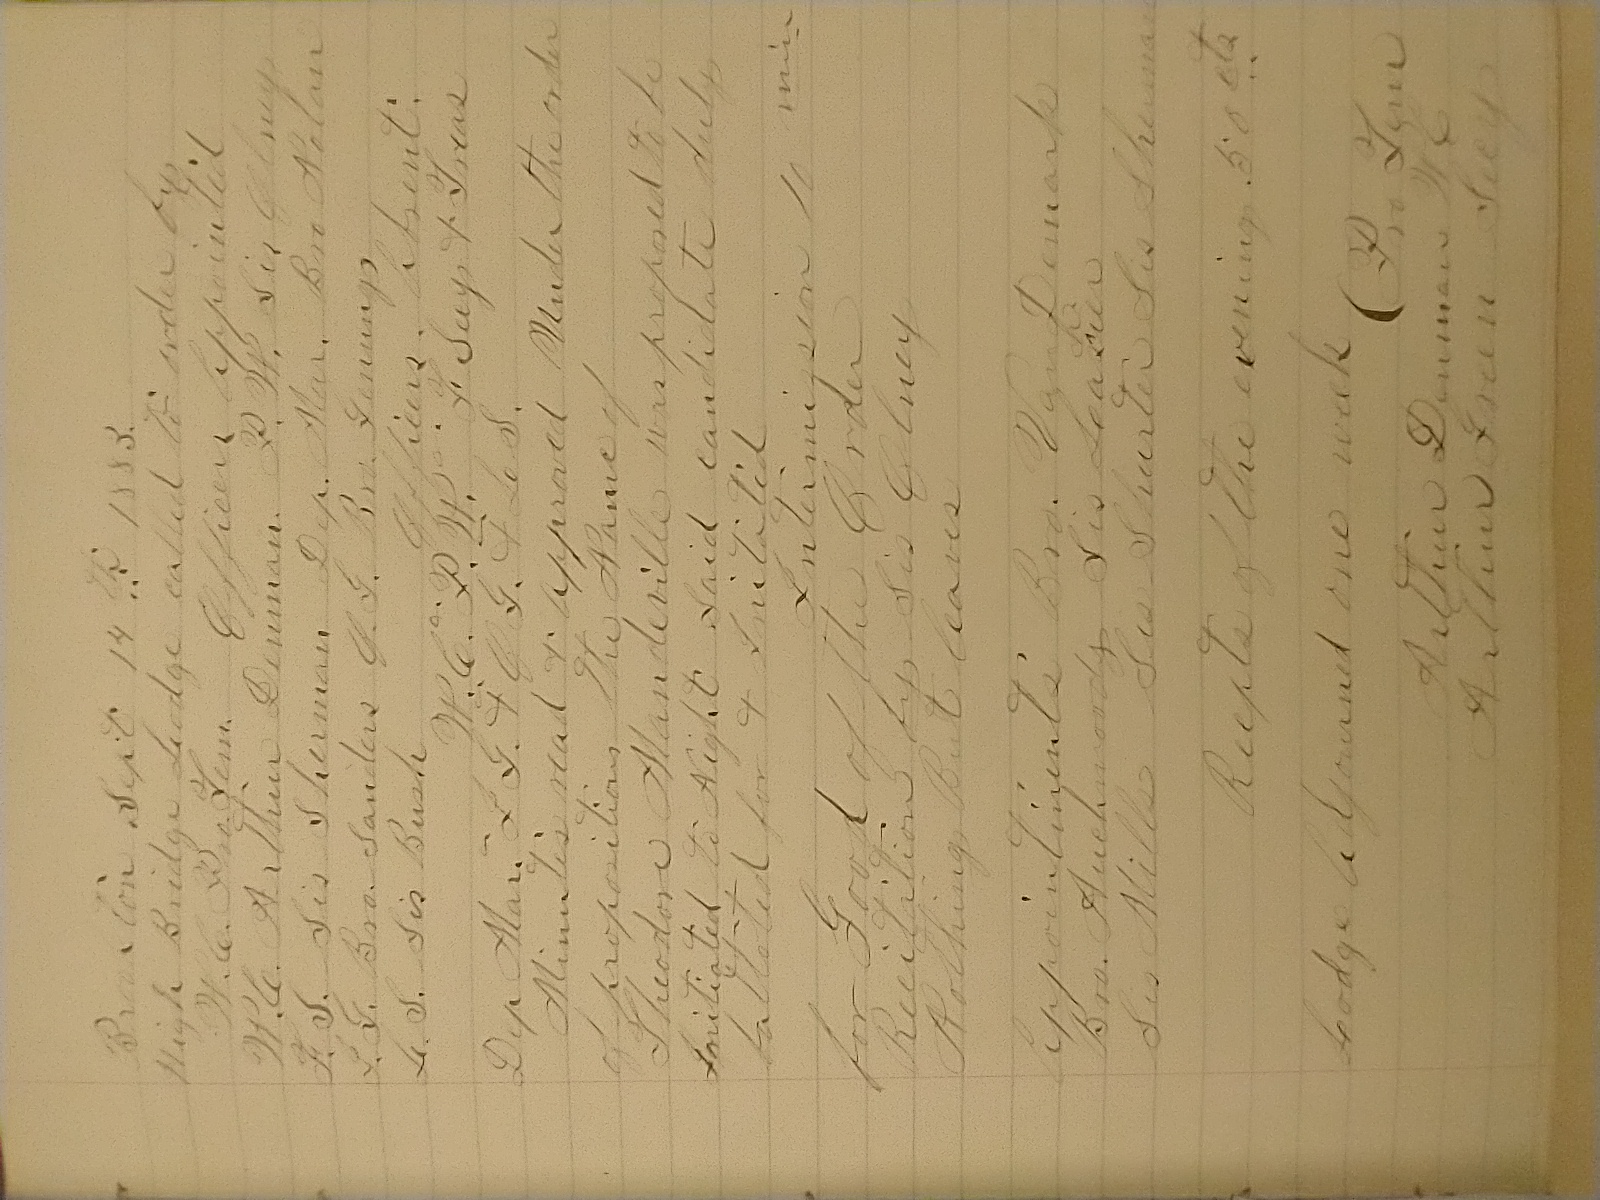 Sept 14th 1883.
High Bridge Lodge called to order by
W.C. Pro. Tem. Officers Appointed
W.C. Arthur Denman. P. W. Sis Olney
F. S. Sis Sherman Dep. Mar. Bro Nolan
I. G. Bro. Sanders O. G. Bro. Jennings
L. S. Sis Bush Officers. Absent.
W. C. P. W. F Secy & Treas
Dep Mar. I G. & O G. & L S.
Minutes read & Approved Under the order
of propositions the Name of
Theodore Mandeville was proposed to be
Initiated to Night Said candidate duly
balloted for & Initiated
Intermission 10 min
for Good of the Order
Recitation by Sis Olney
Nothing But leaves
Appointments Bro. Van Demark
Bro. Auchmoody Sis Leasier
Sis Mills Sis Shurter Sis Sherman
Recpts of the evening .50 cts
Lodge Adjourned one week
(Pro Tem
Arthur Denman W C
Arthur Green Secy